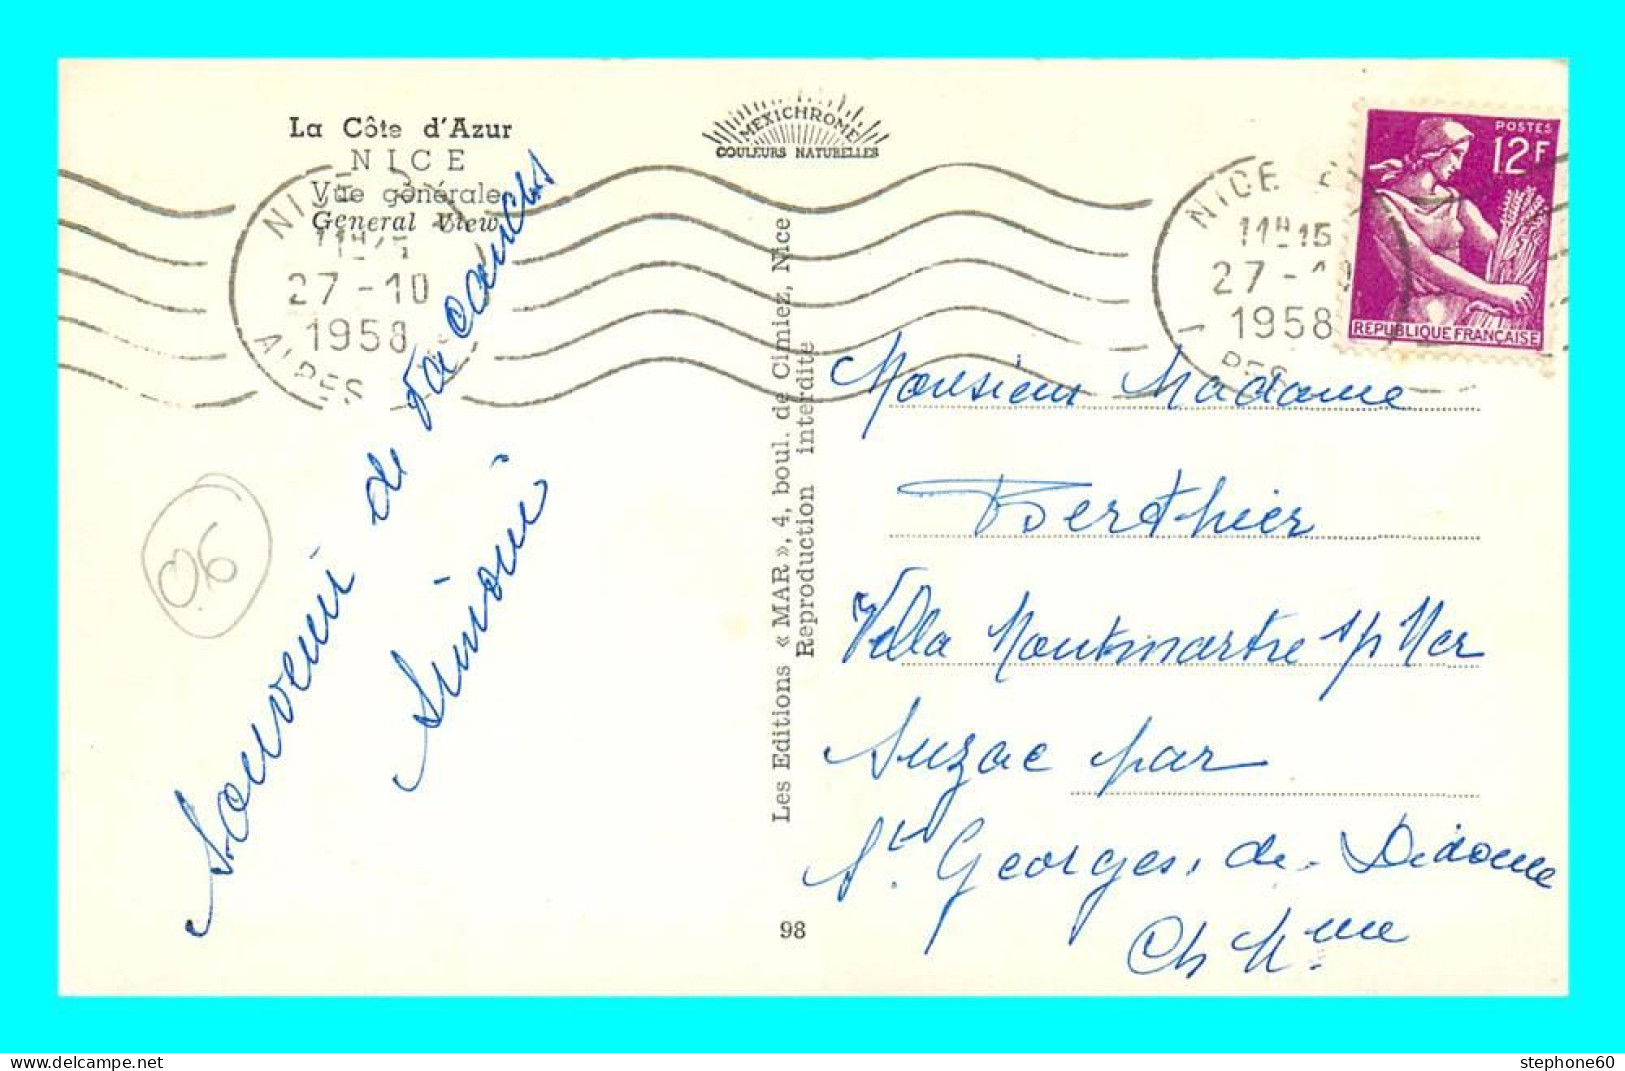 La Côte d'Azur
NICE
Vue générale
General View
MEXICHROME
COULEURS NATURELLES
POSTES
12F
REPUBLIQUE FRANÇAISE
NICE
11H15
27-10
1958
ALPES
NICE
11H15
27-10
1958
Souvenir de vacances
Simoni
06
Les Editions « MAR », 4, boul. de Cimiez, Nice
Reproduction interdite
98
Monsieur Madame
Berthier
Villa Montmartre s/p Mer
Suzac par
St. Georges. de. Didonne
Ch Mme
www.delcampe.net
stephone60